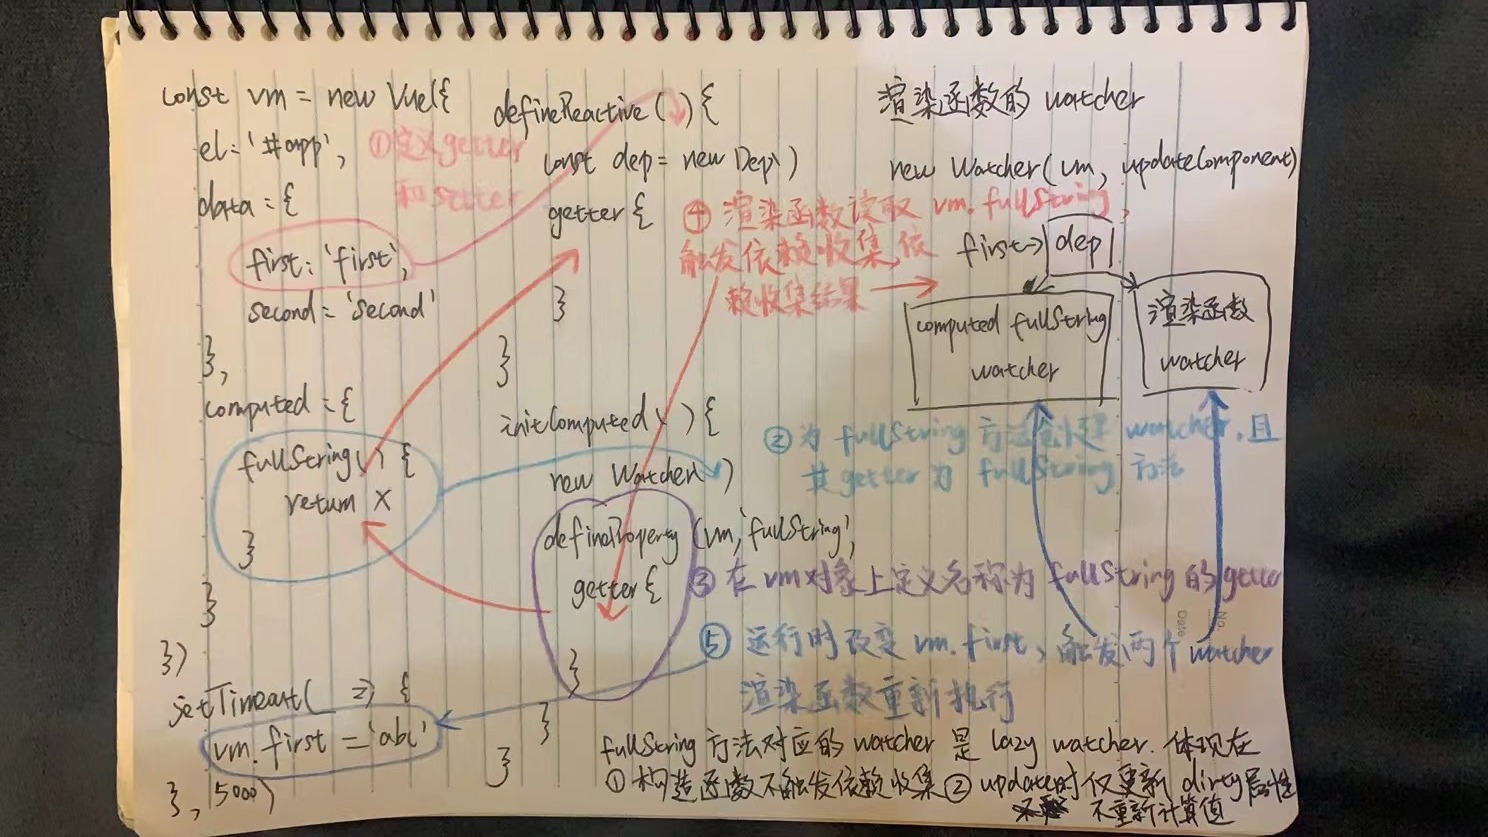 const vm = new Vue({
el: '#app',
data = {
first: 'first',
second = 'second'
},
computed = {
fullString() {
return X
}
}
})
setTimeout(_ => {
vm.first = 'abc'
}, 5000)
①定义getter
和setter
defineReactive () {
const dep = new Dep()
getter {
}
}
initComputed() {
new Watcher()
defineProperty (vm, 'fullString',
getter {
}
}
}
渲染函数的 watcher
new Watcher(vm, updateComponent)
④ 渲染函数读取 vm.fullString,
触发依赖收集,依
赖收集结果
first→ dep
computed fullString
watcher
渲染函数
watcher
②为 fullString 方法创建 watcher,且
其getter为 fullString 方法
③在vm对象上定义名称为fullString的getter
⑤ 运行时改变 vm.first, 触发两个watcher
渲染函数重新执行
No.
Date
fullString 方法对应的 watcher 是 lazy watcher. 体现在
①构造函数不触发依赖收集②update时仅更新 dirty属性
不重新计算值